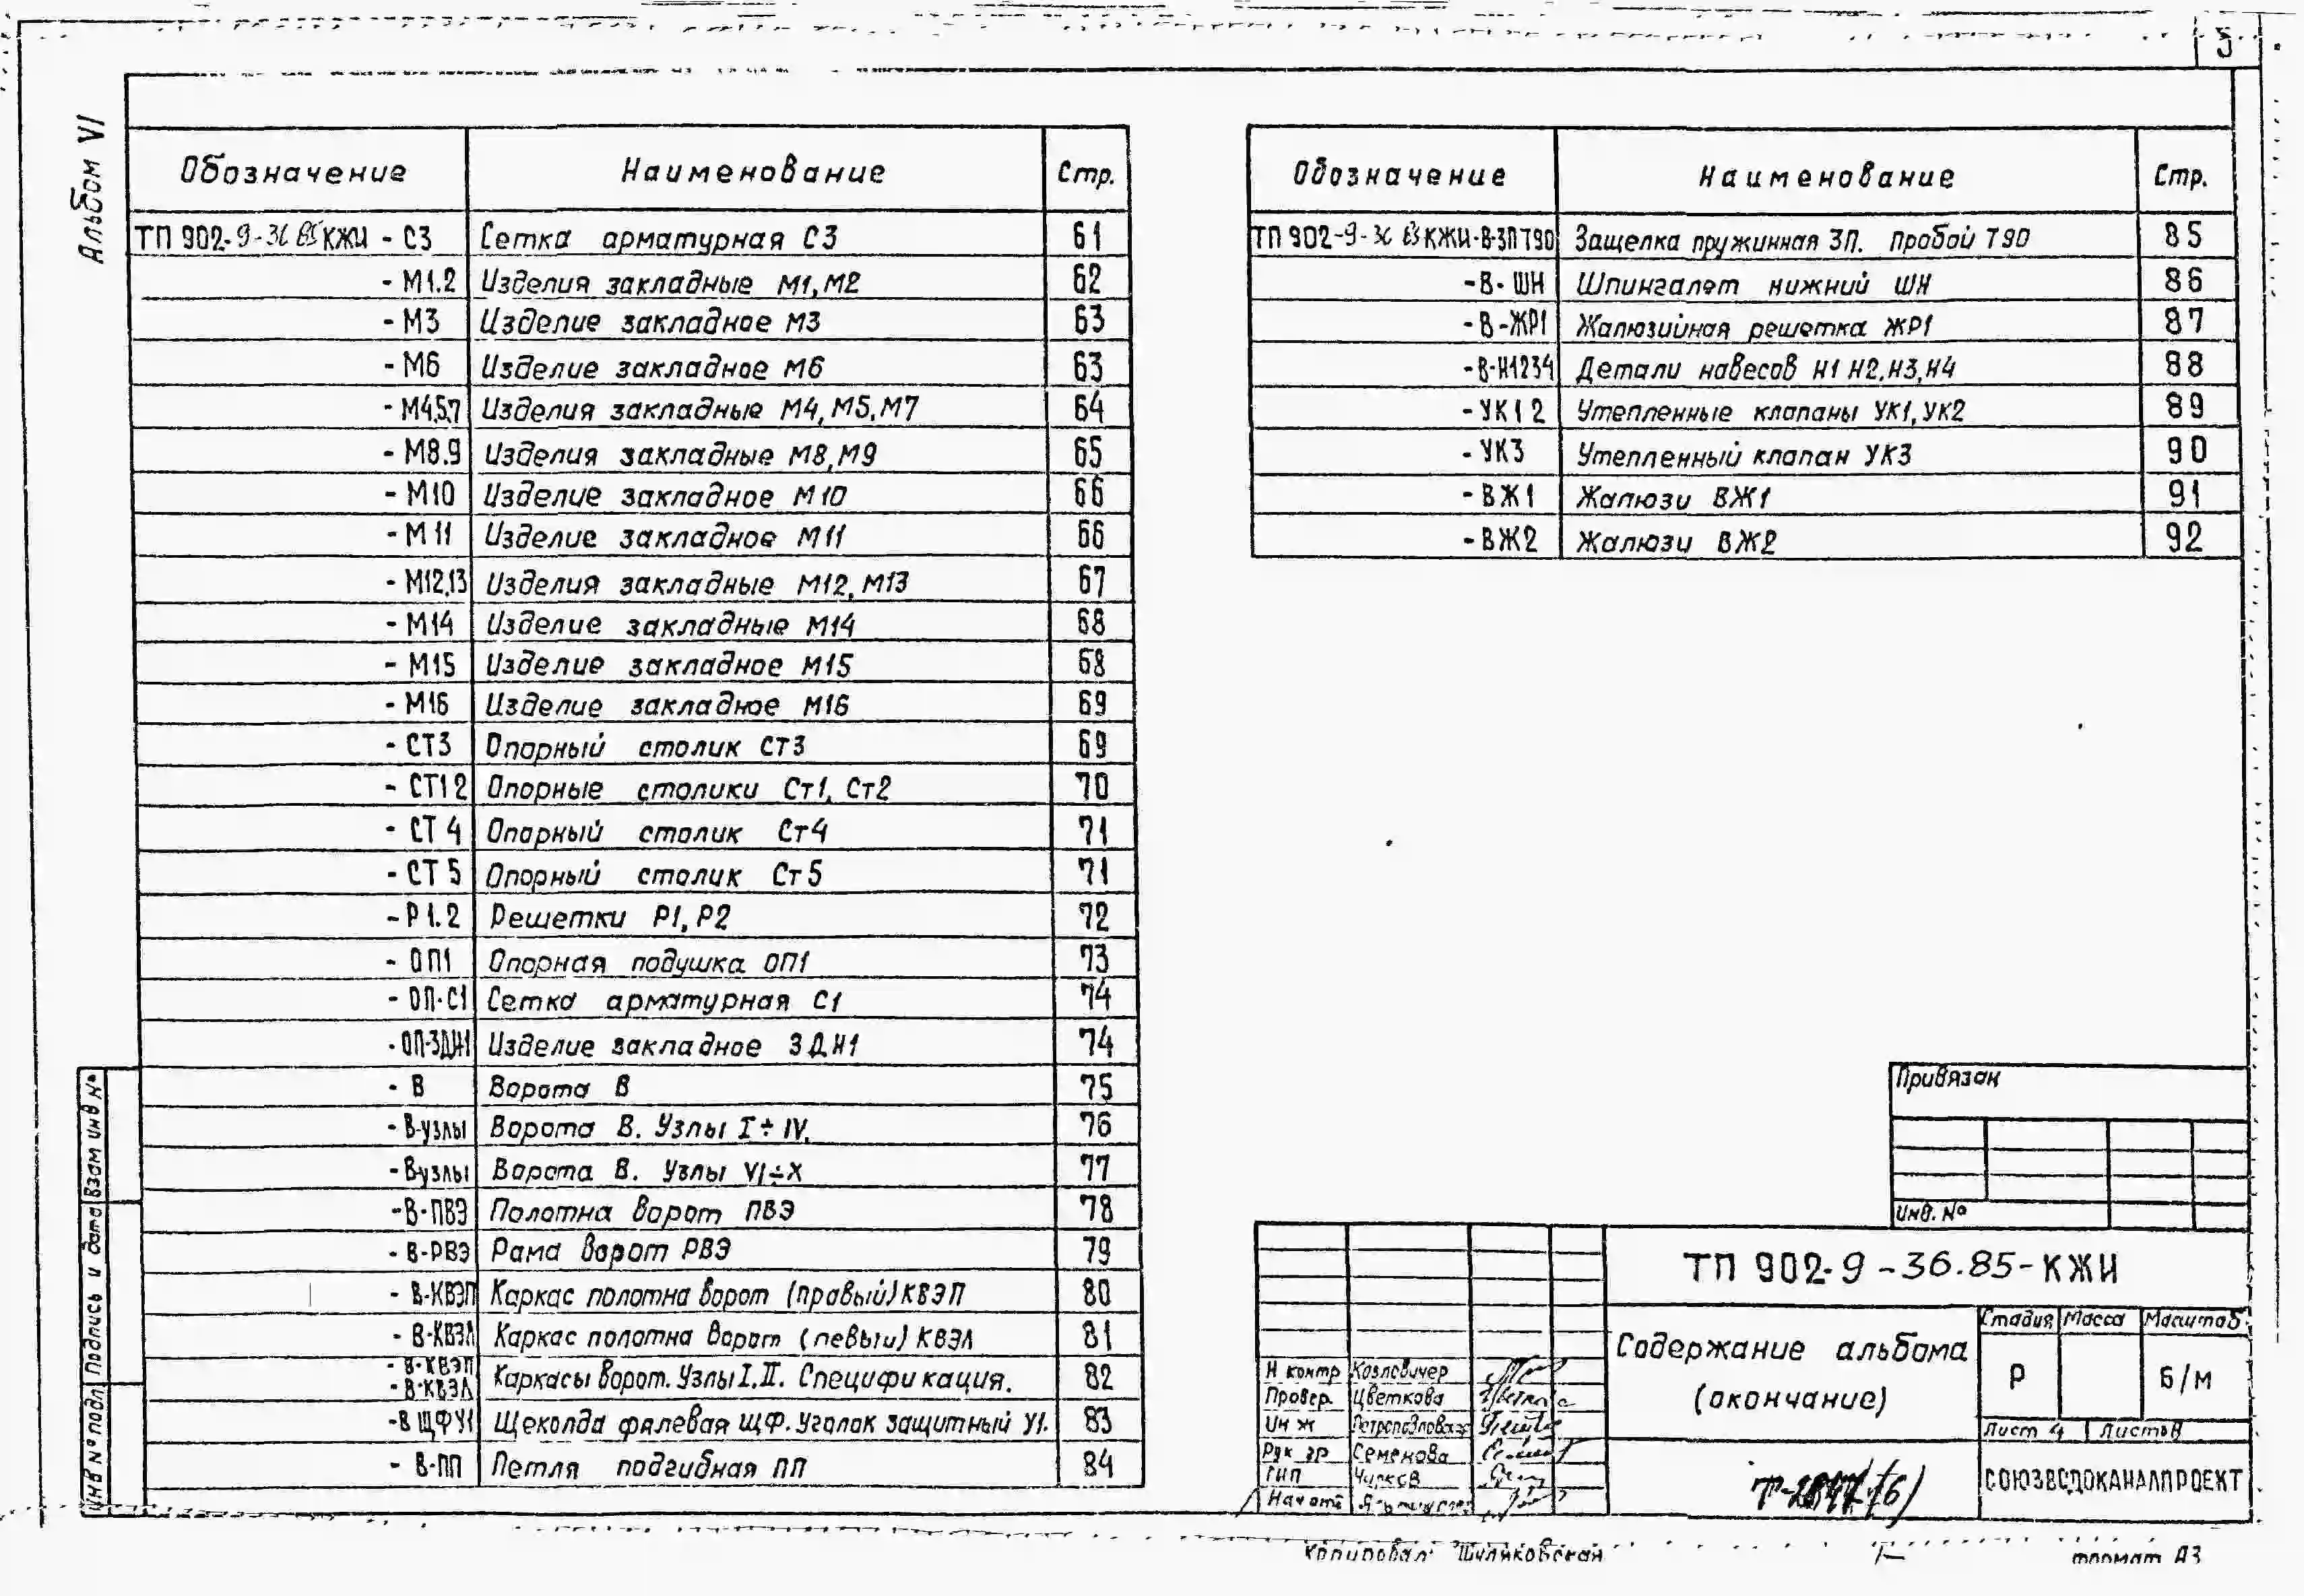 5
Альбом VI
Обозначение Наименование Стр.
ТП 902-9-36 85 КЖИ - С3 Сетка арматурная С3 61
- М1.2 Изделия закладные М1, М2 62
- М3 Изделие закладное М3 63
- М6 Изделие закладное М6 63
- М4,5,7 Изделия закладные М4, М5, М7 64
- М8.9 Изделия закладные М8, М9 65
- М10 Изделие закладное М10 66
- М11 Изделие закладное М11 66
- М12,13 Изделия закладные М12, М13 67
- М14 Изделие закладные М14 68
- М15 Изделие закладное М15 68
- М16 Изделие закладное М16 69
- СТ3 Опорный столик СТ3 69
- СТ1 2 Опорные столики Ст1, Ст2 70
- СТ 4 Опорный столик Ст4 71
- СТ 5 Опорный столик Ст5 71
- Р1.2 Решетки Р1, Р2 72
- ОП1 Опорная подушка ОП1 73
- ОП-С1 Сетка арматурная С1 74
- ОП-ЗДН1 Изделие закладное ЗДН1 74
- В Ворота В 75
- В-узлы Ворота В. Узлы I ÷ IV. 76
- В-узлы Ворота В. Узлы VI ÷ X 77
- В-ПВЭ Полотна ворот ПВЭ 78
- В-РВЭ Рама ворот РВЭ 79
- В-КВЭП Каркас полотна ворот (правый) КВЭП 80
- В-КВЭЛ Каркас полотна ворот (левый) КВЭЛ 81
- В-КВЭП
- В-КВЭЛ Каркасы ворот. Узлы I, II. Спецификация. 82
- В ЩФУ1 Щеколда фалевая ЩФ. Уголок защитный У1. 83
- В-ПП Петля подгибная ПП 84
Обозначение Наименование Стр.
ТП 902-9-36 85 КЖИ-В-ЗПТ90 Защелка пружинная ЗП. Пробой Т90 85
- В- ШН Шпингалет нижний ШН 86
- В-ЖР1 Жалюзийная решетка ЖР1 87
- В-Н1234 Детали навесов Н1 Н2, Н3, Н4 88
- УК1 2 Утепленные клапаны УК1, УК2 89
- УК3 Утепленный клапан УК3 90
- ВЖ1 Жалюзи ВЖ1 91
- ВЖ2 Жалюзи ВЖ2 92
Привязан
Инв. №
ТП 902-9-36.85-КЖИ
Содержание альбома
(окончание)
Стадия Масса Масштаб
Р Б/М
Лист 4 Листов
СОЮЗВОДОКАНАЛПРОЕКТ
Н контр Козловичер
Провер. Цветкова
Инж Петропавловская
Рук гр Семенова
ГИП Чирков
Нач отд
Инв № подл Подпись и дата Взам инв №
Копировал: Шуляковская
Формат А3